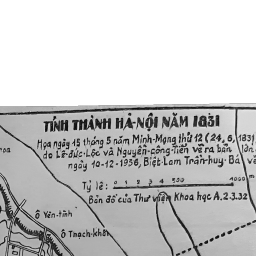 TỈNH THÀNH HÀ-NỘI NĂM 1831
Họa ngày 15 tháng 5 năm Minh-Mạng thứ 12 (24, 6, 1831
do Lê-đức-Lộc và Nguyễn-công-Tiến vẽ ra bản lớn
ngày 10-12-1936, Biệt-Lam Trần-huy-Bá vẽ
Tỷ lệ: 0 1 2 3 4 500 1000 m
Bản đồ của Thư viện Khoa học A.2.3.32
Ô Yên-tĩnh
Ô Thạch-khối